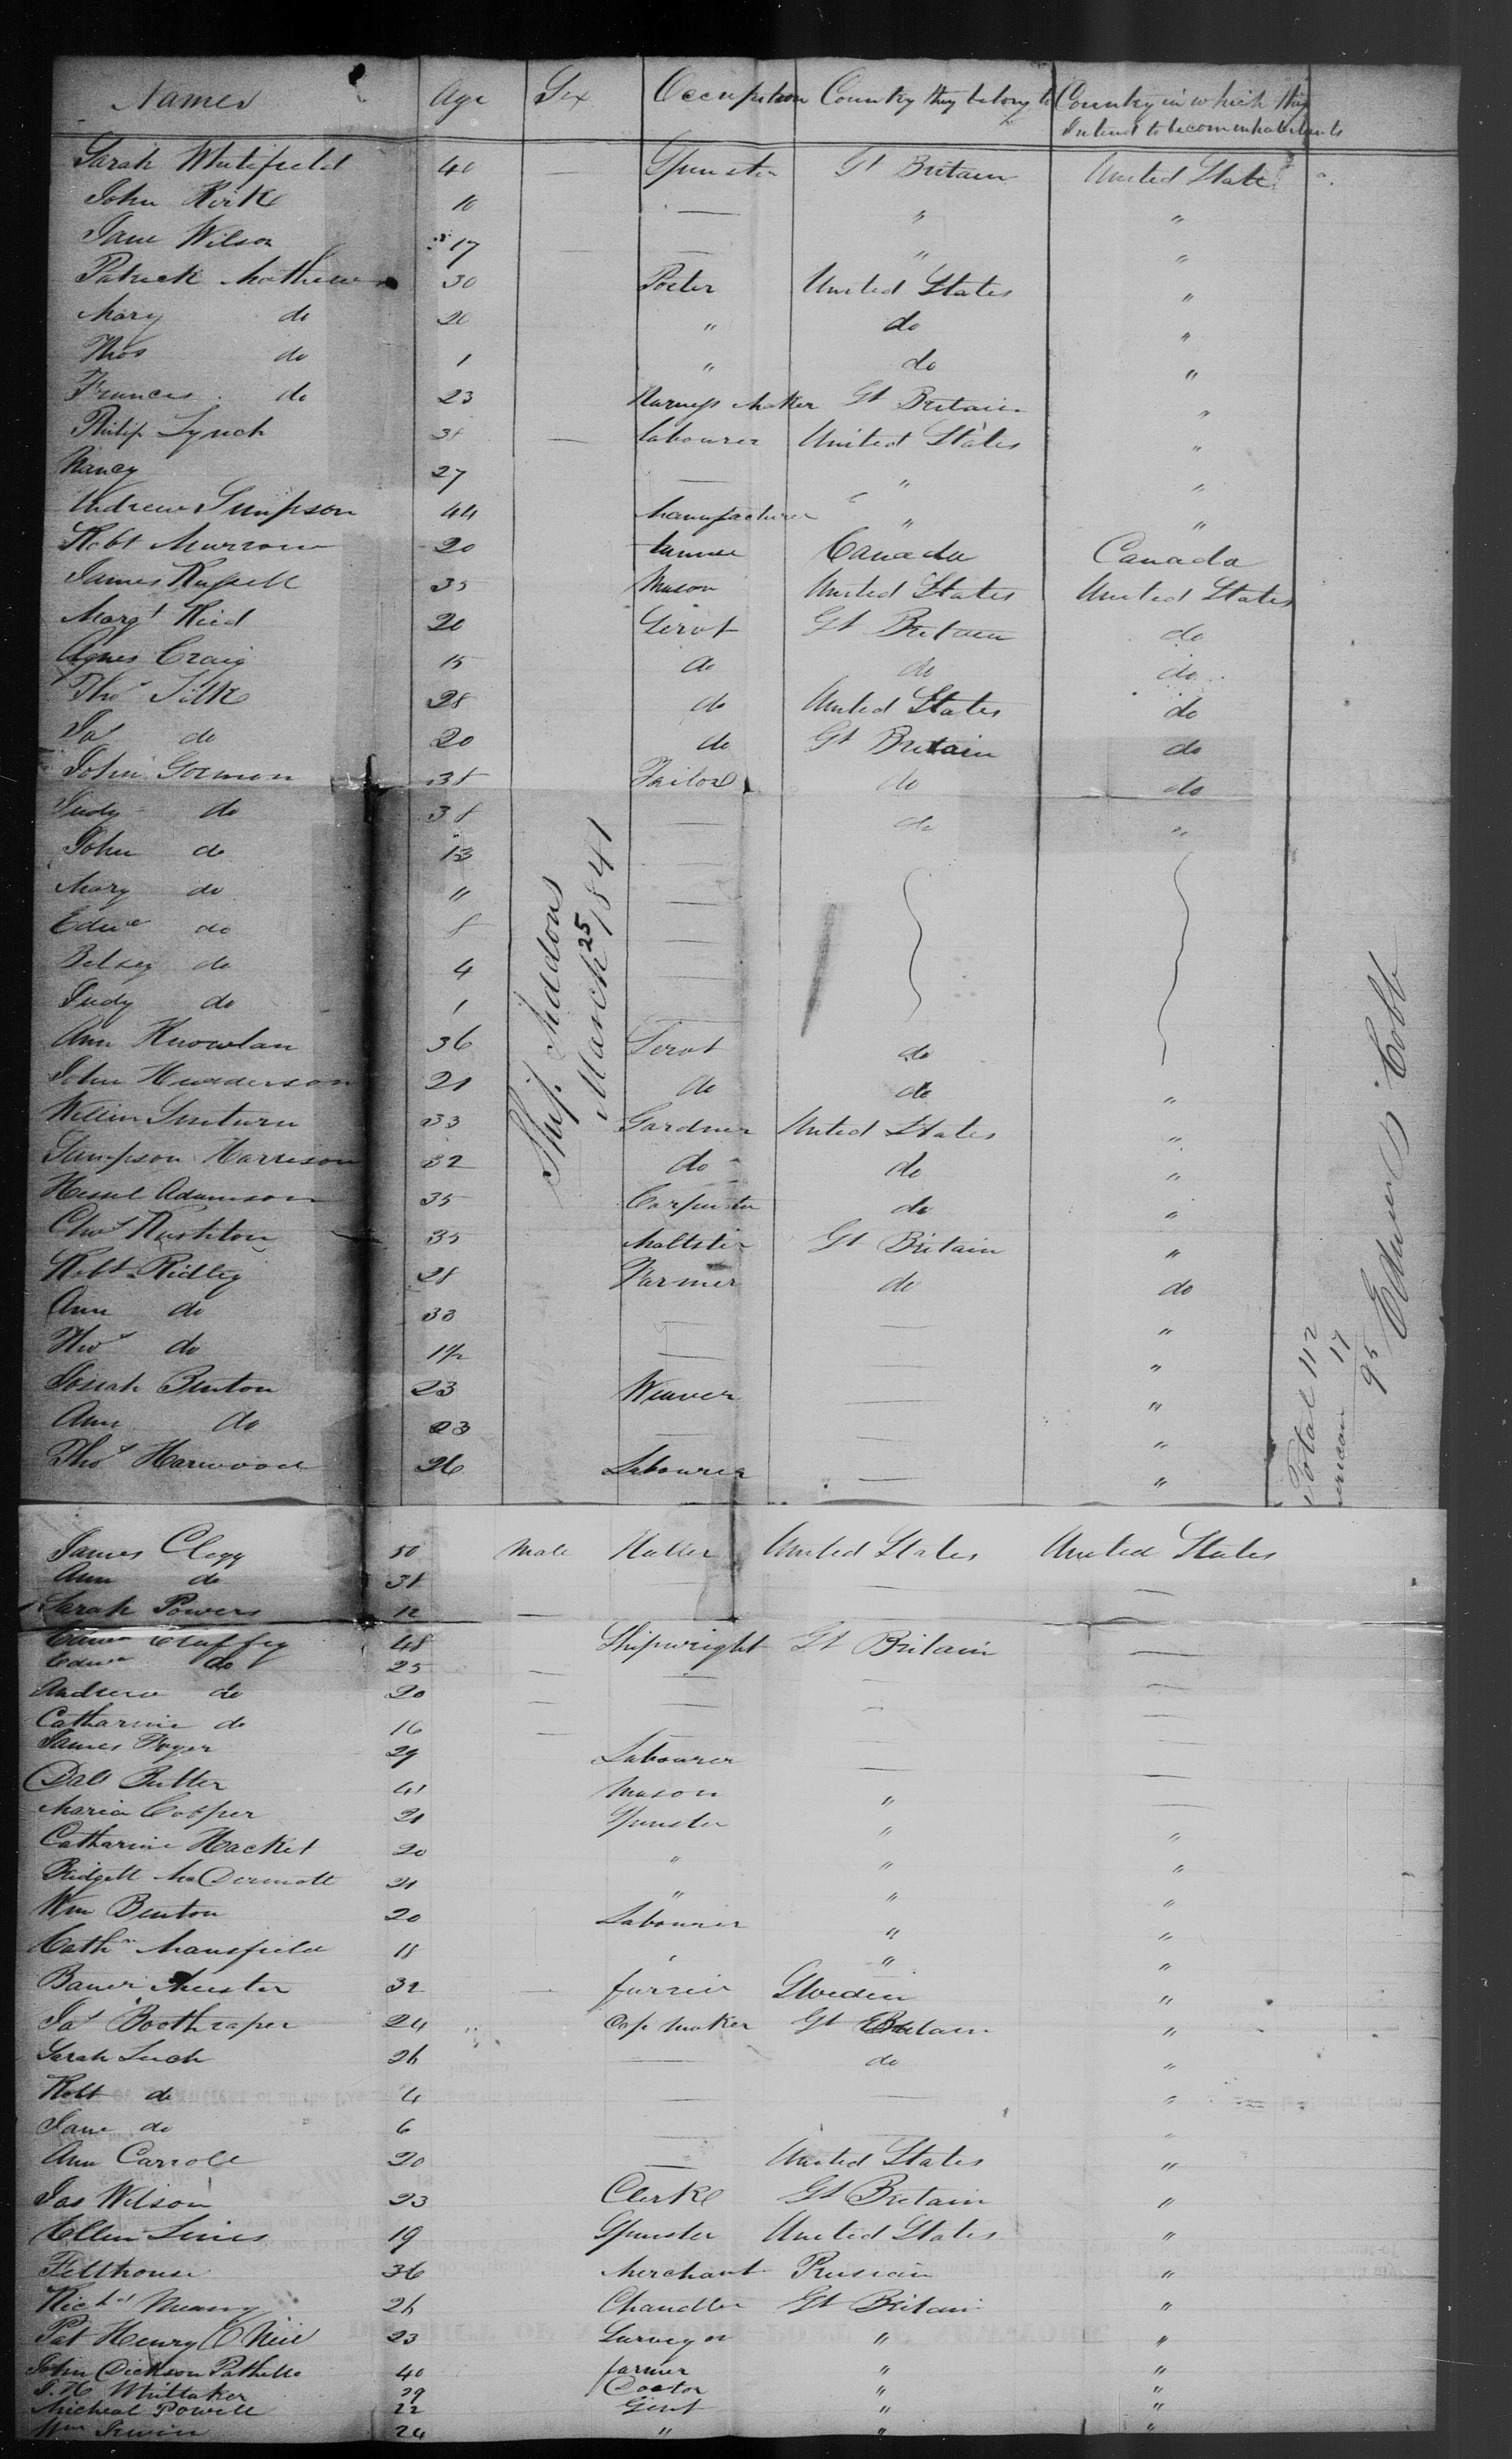 Names Age Sex Occupation Country they belong to Country in which they
Intend to becom inhabitants
Sarah Whitefield 40 — Spinster Gt Britain United State
John Kirk 10 — " "
Jane Wilson 17 — " "
Patrick Mathew 30 Porter United States "
Mary do 20 " do "
Thos do 1 " do "
Frances do 23 Harness Maker Gt Britain "
Philip Lynch 38 — Labourer United States "
Nancy 27 — " "
Andrew Simpson 44 Manufacturer " "
Robt Murrow 20 Canada Canada
James Russell 35 Mason United States United States
Margt Reid 20 Servt Gt Britain do
Agnes Craig 15 do do do
Thos Silk 28 do United States do
Jas do 20 do Gt Britain do
John Gorman 38 Tailor do do
Judy do 38 — do "
John do 13 —
Mary do " —
Edwd do 8 —
Betsey do 4 —
Judy do 1 —
Ann Knowlan 36 Servt do
John Hudderson 21 do do "
33 Gardner United States "
Simpson Harrison 32 do do "
Adamson 35 Carpenter do "
Chas Rushton 35 Maltster Gt Britain "
Robt Ridley 28 Farmer do do
Ann do 30 — — "
Thos do 1½ — "
Josiah Benton 23 Weaver — "
Ann do 23 — — "
Thos Harwood 26 Labourer — "
Ship Siddons
March 25 1841
Total 112
17
95
Edward Cobb
James Clegg 50 Male Hatter United States United States
Ann do 38 — — —
Sarah Powers 12 —
48 Shipwright Gt Britain —
Edwd do 25 — — — —
Andrew do 20 — — — —
Catharine do 16 — — —
James 29 Labourer — —
Butler 41 Mason " —
Maria Copper 21 Spinster " "
Catharine Hacket 20 " " "
Bridgett McDermott 21 " " "
Wm Benton 20 Labourer " "
Cathn Mansfield 18 " " "
32 — furrier Sweden "
Jas Boothraper 24 Cap Maker Gt Britain "
Sarah 26 — do "
Robt do 4 — — "
Jane do 6 — "
Ann Carroll 20 — United States "
Jas Wilson 23 Clerk Gt Britain "
Ellen 19 Spinster United States "
Felthouse 36 Merchant Prussian "
Richd 26 Chandler Gt Britain "
Pat Henry O Neil 23 Surveyor " "
John Dickson 40 farmer " "
J. H Whittaker 29 Doctor " "
Micheal Powell 22 Gent " "
Wm Irwin 24 " " "